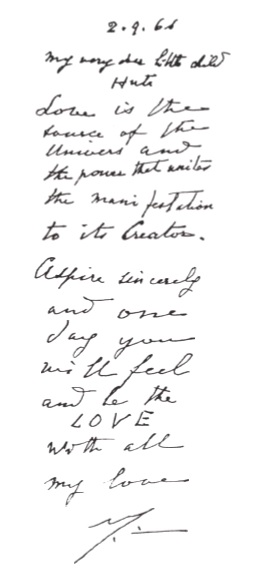 2.9.61
My very dear little child
Huta
Love is the
source of the
Univers and
the power that unites
the manifestation
to its Creator.
Aspire sincerely
and one
day you
will feel
and be the
LOVE
With all
my love